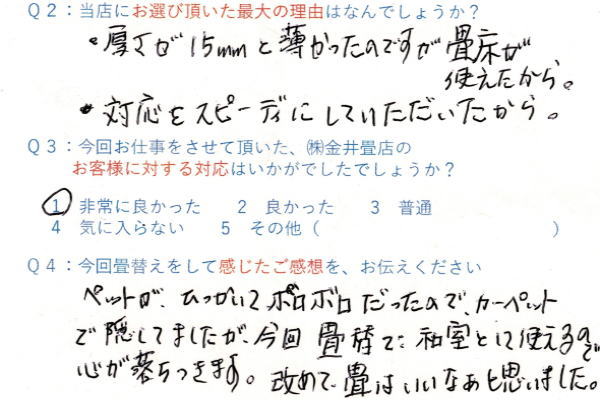 Q2：当店にお選び頂いた最大の理由はなんでしょうか？
・厚さが15mmと薄かったのですが畳床が
使えたから。
・対応をスピーディにしていただいたから。
Q3：今回お仕事をさせて頂いた、㈱金井畳店の
お客様に対する対応はいかがでしたでしょうか？
1 非常に良かった 2 良かった 3 普通
4 気に入らない 5 その他（ ）
Q4：今回畳替えをして感じたご感想を、お伝えください
ペットが、ひっかいてボロボロだったので、カーペット
で隠してましたが、今回畳替で、和室として使えるので
心が落ちつきます。改めて、畳はいいなぁと思いました。